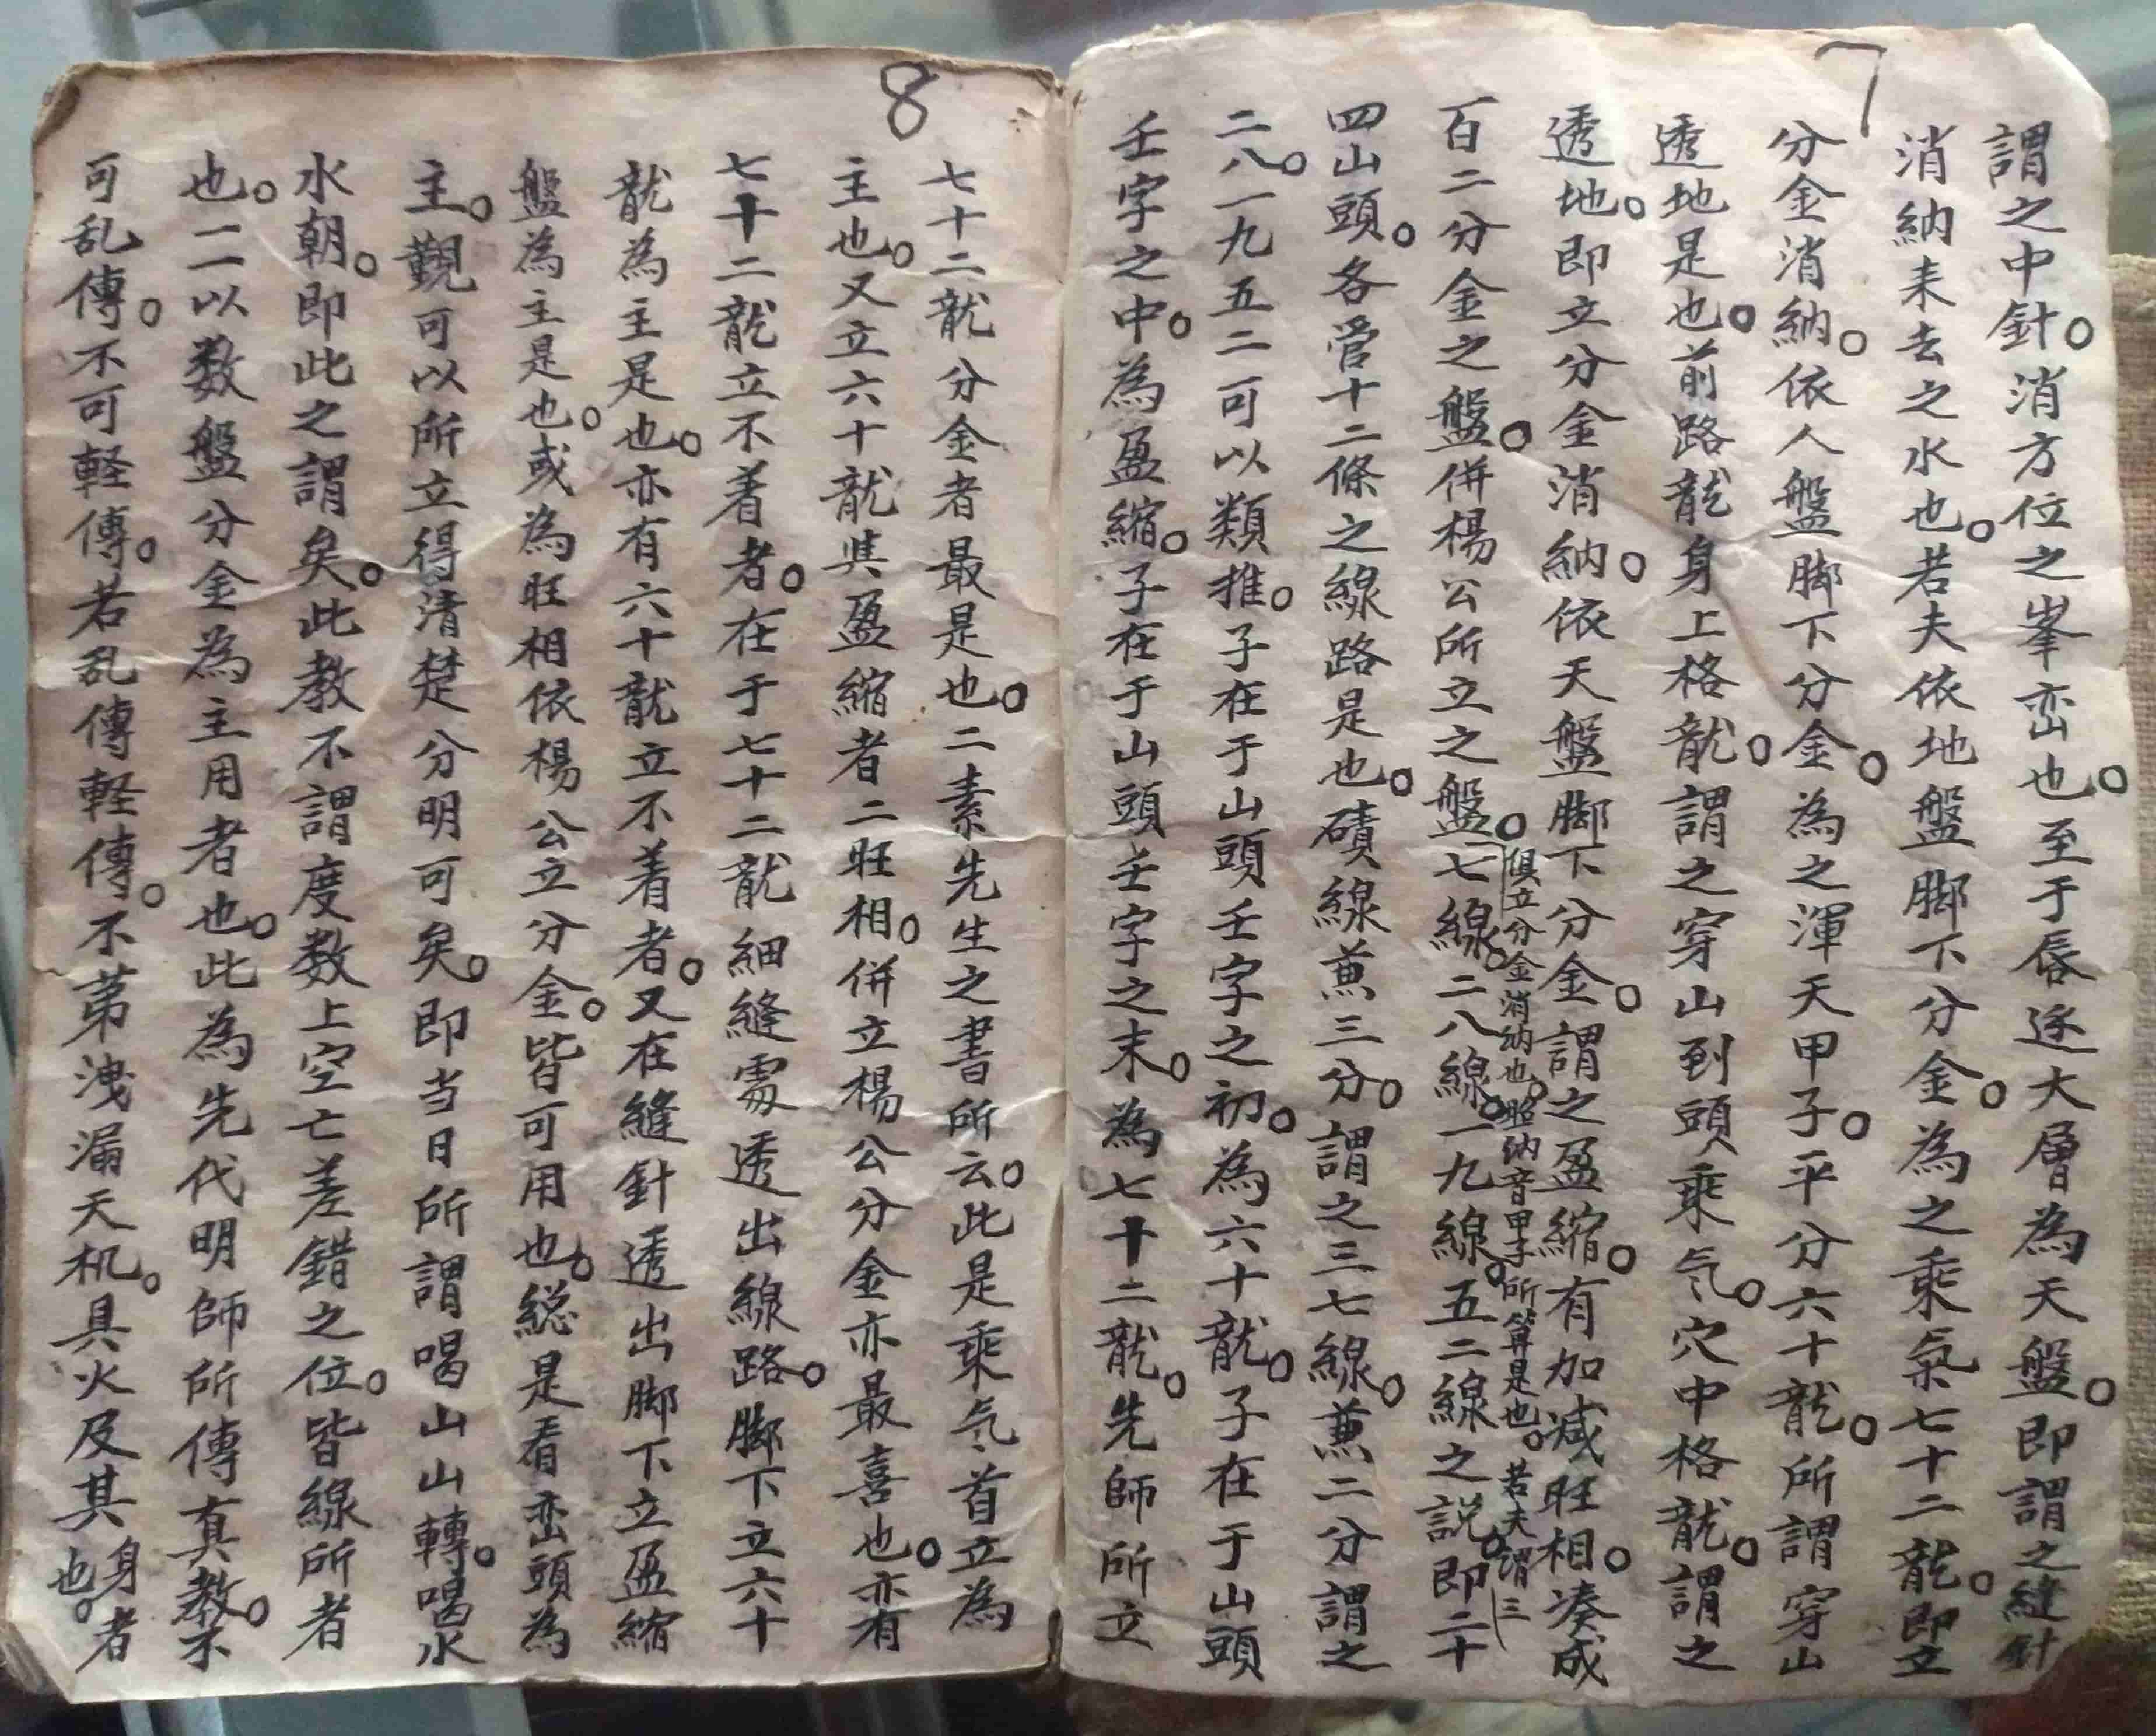 7
謂之中針。消方位之峯峦也。至于唇逐大層為天盤。即謂之縫針
消納耒去之水也。若夫依地盤脚下分金。為之乘氣七十二龍。即立
分金消納。依人盤脚下分金。為之渾天甲子。平分六十龍。所謂穿山
透地是也。前路龍身上格龍。謂之穿山到頭乘气。穴中格龍。謂之
透地。即立分金消納。依天盤脚下分金。謂之盈縮。有加减旺相。凑成
俱立分金消纳也。照纳音甲子所算是也。若夫謂三
百二分金之盤。併楊公所立之盤。七線。二八線。一九線。五二線之説。即二十
四山頭。各管十二條之線路是也。磧線兼三分。謂之三七線。兼二分謂之
二八。一九五二可以類推。子在于山頭壬字之初。為六十龍。子在于山頭
壬字之中。為盈縮。子在于山頭壬字之末。為七十二龍。先師所立
8
七十二龍分金者最是也。二素先生之書所云。此是乘气首立為
主也。又立六十龍與盈縮者二旺相。併立楊公分金亦最喜也。亦有
七十二龍立不着者。在于七十二龍細縫処透出線路。脚下立六十
龍為主是也。亦有六十龍立不着者。又在縫針透出脚下立盈縮
盤為主是也。或為旺相依楊公立分金。皆可用也。総是看峦頭為
主。觀可以所立得清楚分明可矣。即当日所謂喝山山轉。喝水
水朝。即此之謂矣。此教不謂度数上空亡差錯之位。皆線所者
也。二以数盤分金為主用者也。此為先代明師所傳真教。不
可乱傳。不可軽傳。若乱傳軽傳。不苐洩漏天机。具火及其身者
也。